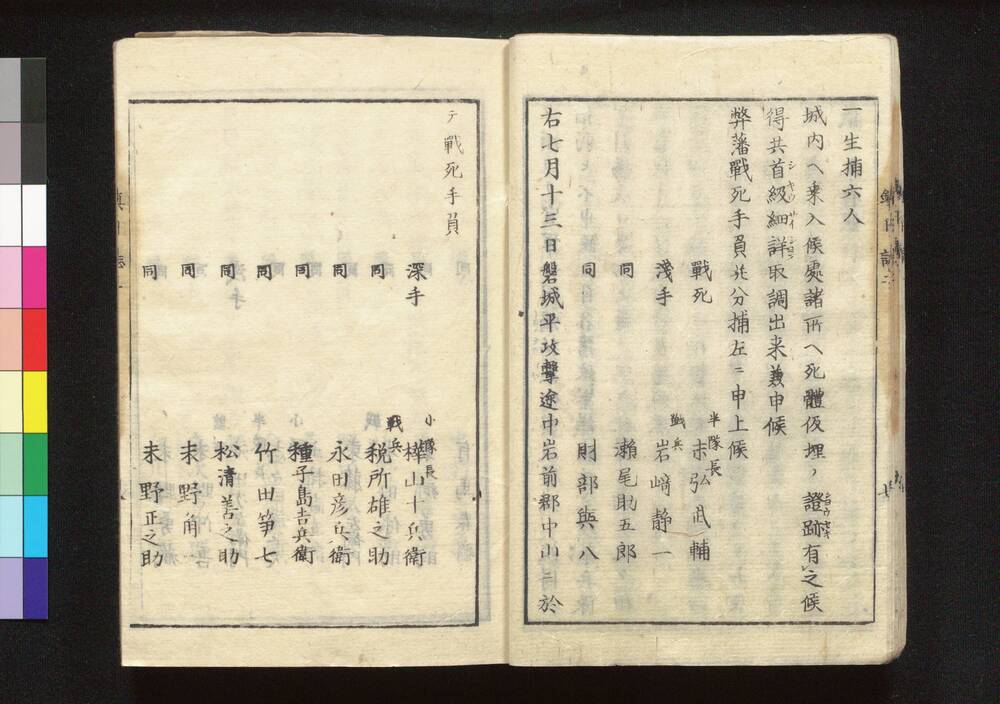 一生捕六人
城内ヘ乗入候處諸所ヘ死體仮埋ノ證跡有之候
得共首級細詳取調出来兼申候
弊藩戰死手負並分捕左ニ申上候
戰死 半隊長 赤弘武輔
淺手 戰兵 岩﨑静一
同 瀬尾助五郎
同 財部與八
右七月十三日磐城平攻撃途中岩前郡中山ニ於
テ戰死手負
深手 小隊長 樺山十兵衛
同 戰兵 税所雄之助
同 永田彦兵衛
同 種子島吉兵衛
同 竹田笋七
同 松清善之助
同 耒野角一
同 耒野正之助